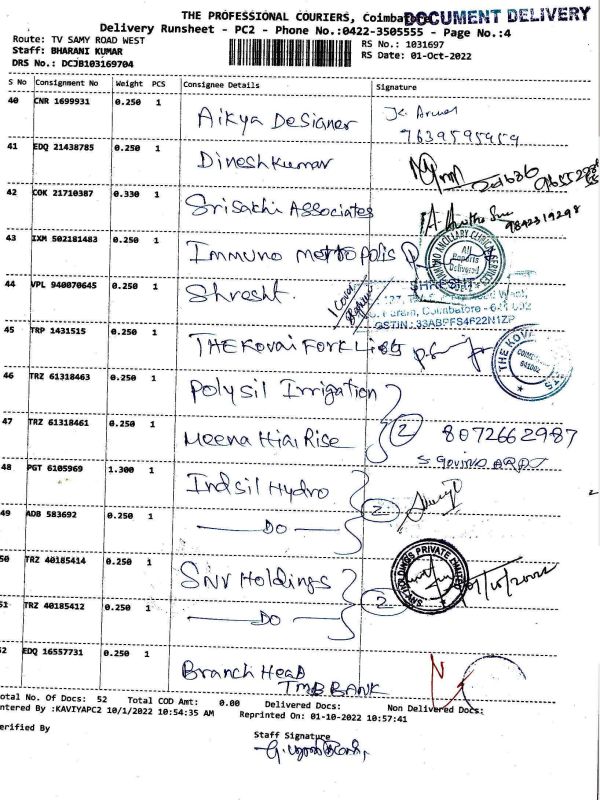 THE PROFESSIONAL COURIERS, Coimbatore
DOCUMENT DELIVERY
Delivery Runsheet - PC2 - Phone No.:0422-3505555 - Page No.:4
Route: TV SAMY ROAD WEST
RS No.: 1031697
Staff: BHARANI KUMAR
RS Date: 01-Oct-2022
DRS No.: DCJB103169704
S No Consignment No Weight PCS Consignee Details Signature
40 CNR 1699931 0.250 1 Aikya Designer
9639595959
41 EDQ 21438785 0.250 1 Dineshkumar
42 COK 21710387 0.330 1 Srisakhi Associates
9842319298
43 IXM 502181483 0.250 1 Immuno mettopolis
All Reports Delivered
44 VPL 940070645 0.250 1 Shresht
1 Cover
Coimbatore - 641 002
GSTIN : 33ABPFS4622N1ZP
45 TRP 1431515 0.250 1 THE Kovai Fork Lifts
THE KOVAI
46 TRZ 61318463 0.250 1 Polysil Irrigation
47 TRZ 61318461 0.250 1 Meena Hiai Rise
2 8072662987
S GOVIND
48 PGT 6105969 1.300 1 Indsil Hydro
2
49 ADB 583692 0.250 1 DO
50 TRZ 40185414 0.250 1 SNV Holdings
SNV HOLDINGS PRIVATE LIMITED
2
51 TRZ 40185412 0.250 1 DO
52 EDQ 16557731 0.250 1 Branch Head
TMB BANK
Total No. Of Docs: 52 Total COD Amt: 0.00 Delivered Docs: Non Delivered Docs:
Entered By :KAVIYAPC2 10/1/2022 10:54:35 AM Reprinted On: 01-10-2022 10:57:41
Verified By
Staff Signature